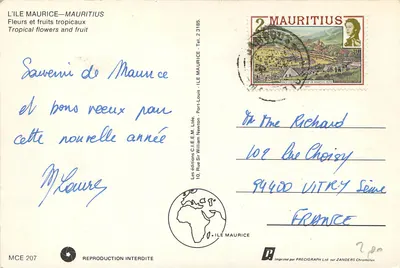 L'ILE MAURICE—MAURITIUS
Fleurs et fruits tropicaux
Tropical flowers and fruit
2 MAURITIUS
Souvenir de Maurice
et bons voeux pour
cette nouvelle année
Les éditions C.I.E.M. Ltée
10, Rue Sir William Newton Port-Louis - ILE MAURICE - Tel. 2 3165
Mr Mme Richard
109 Rue Choisy
94400 VITRY Seine
FRANCE
ILE MAURICE
MCE 207
REPRODUCTION INTERDITE
Imprimé par PRECIGRAPH Ltd sur ZANDERS Chromolux